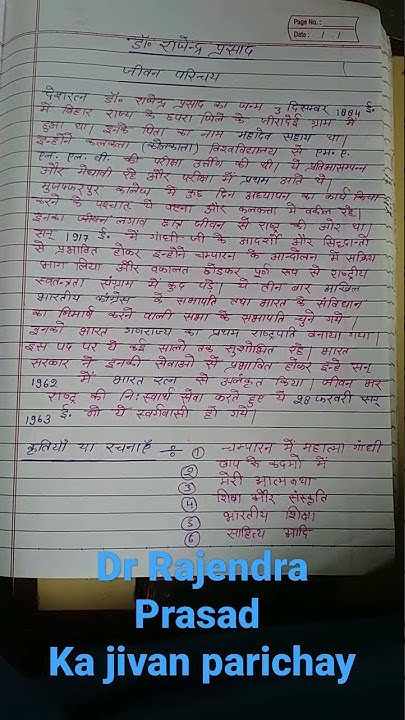 Page No.:
Date: / /
डॉ॰ राजेन्द्र प्रसाद
जीवन परिचय
देशरत्न डॉ॰ राजेन्द्र प्रसाद का जन्म 3 दिसम्बर 1884 ई॰
में बिहार राज्य के छपरा जिले के जीरादेई ग्राम में
हुआ था। इनके पिता का नाम महादेव सहाय था।
इन्होंने कलकत्ता (कोलकाता) विश्वविद्यालय से एम॰ ए॰
एल॰ एल॰ बी॰ की परीक्षा उत्तीर्ण की थी। ये प्रतिभासम्पन्न
और मेधावी रहे और परीक्षा में प्रथम आते थे।
मुजफ्फरपुर कालेज में कुछ दिन अध्यापन का कार्य किया
करने के पश्चात ये पटना और कलकत्ता में वकील रहे।
इनका जीवन लगाव छात्र जीवन से राष्ट्र की ओर था।
सन् 1917 ई॰ में गांधी जी के आदर्शों और सिद्धान्तों
से प्रभावित होकर इन्होंने चम्पारन के आन्दोलन में सक्रिय
भाग लिया और वकालत छोड़कर पूर्ण रूप से राष्ट्रीय
स्वतन्त्रता संग्राम में कूद पड़े। ये तीन बार अखिल
भारतीय कांग्रेस के सभापति तथा भारत के संविधान
का निर्माण करने वाली सभा के सभापति चुने गये।
इनको भारत गणराज्य का प्रथम राष्ट्रपति बनाया गया।
इस पद पर ये कई सालो तक सुशोभित रहे। भारत
सरकार ने इनकी सेवाओं से प्रभावित होकर इन्हे सन्
1962 में भारत रत्न से अलंकृत किया। जीवन भर
राष्ट्र की निःस्वार्थ सेवा करते हुए ये 28 फरवरी सन्
1963 ई॰ को ये स्वर्गवासी हो गये।
कृतियाँ या रचनाएँ ÷ ① चम्पारन में महात्मा गांधी
② बापू के कदमो में
③ मेरी आत्मकथा
④ शिक्षा और संस्कृति
⑤ भारतीय शिक्षा
⑥ साहित्य आदि
Dr Rajendra
Prasad
Ka jivan parichay